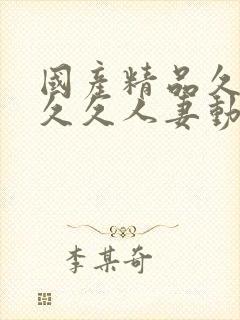 國產精品久
久久人妻動
李某奇